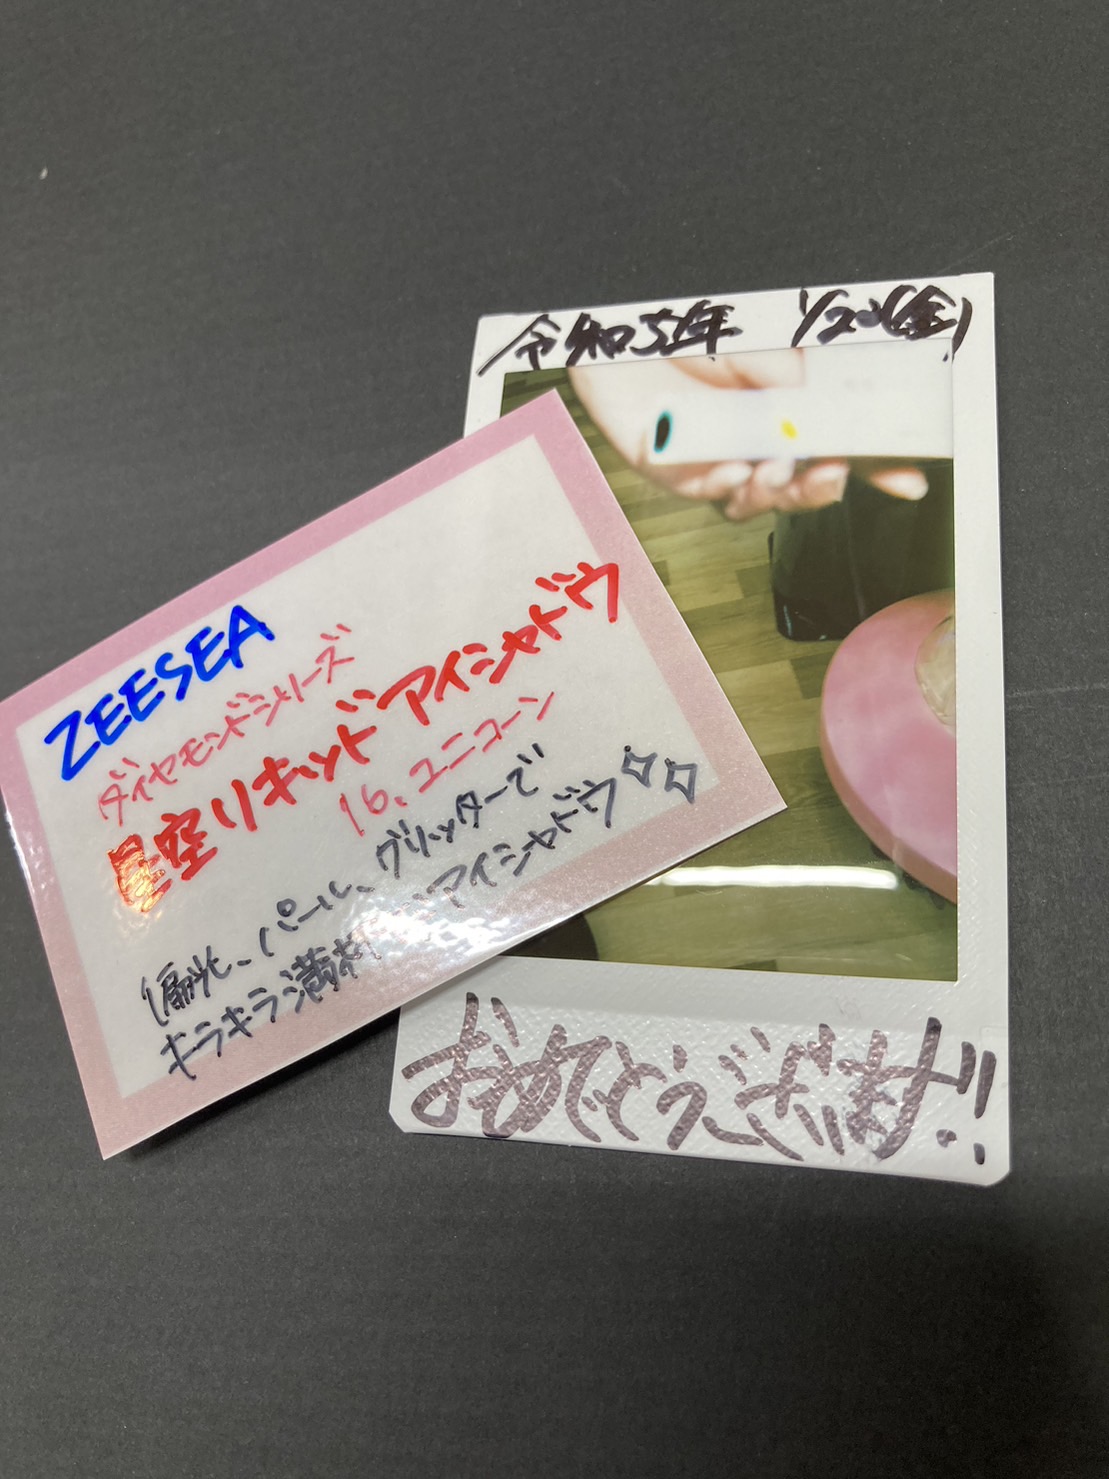 令和5年 1/20(金)
おめでとうございます!!
ZEESEA
ダイヤモンドシリーズ
星空リキッドアイシャドウ
16、ユニコーン
偏光、パール、グリッターで
キラキラ満載 アイシャドウ